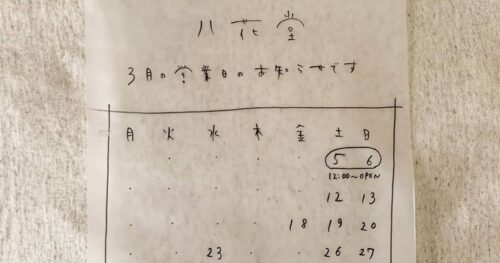 八花堂
3月の営業日のお知らせです
月 火 水 木 金 土 日
・ ・ ・ ・ ・ 5 6
12:00～OPEN
・ ・ ・ ・ ・ 12 13
・ ・ ・ ・ 18 19 20
・ ・ 23 ・ ・ 26 27